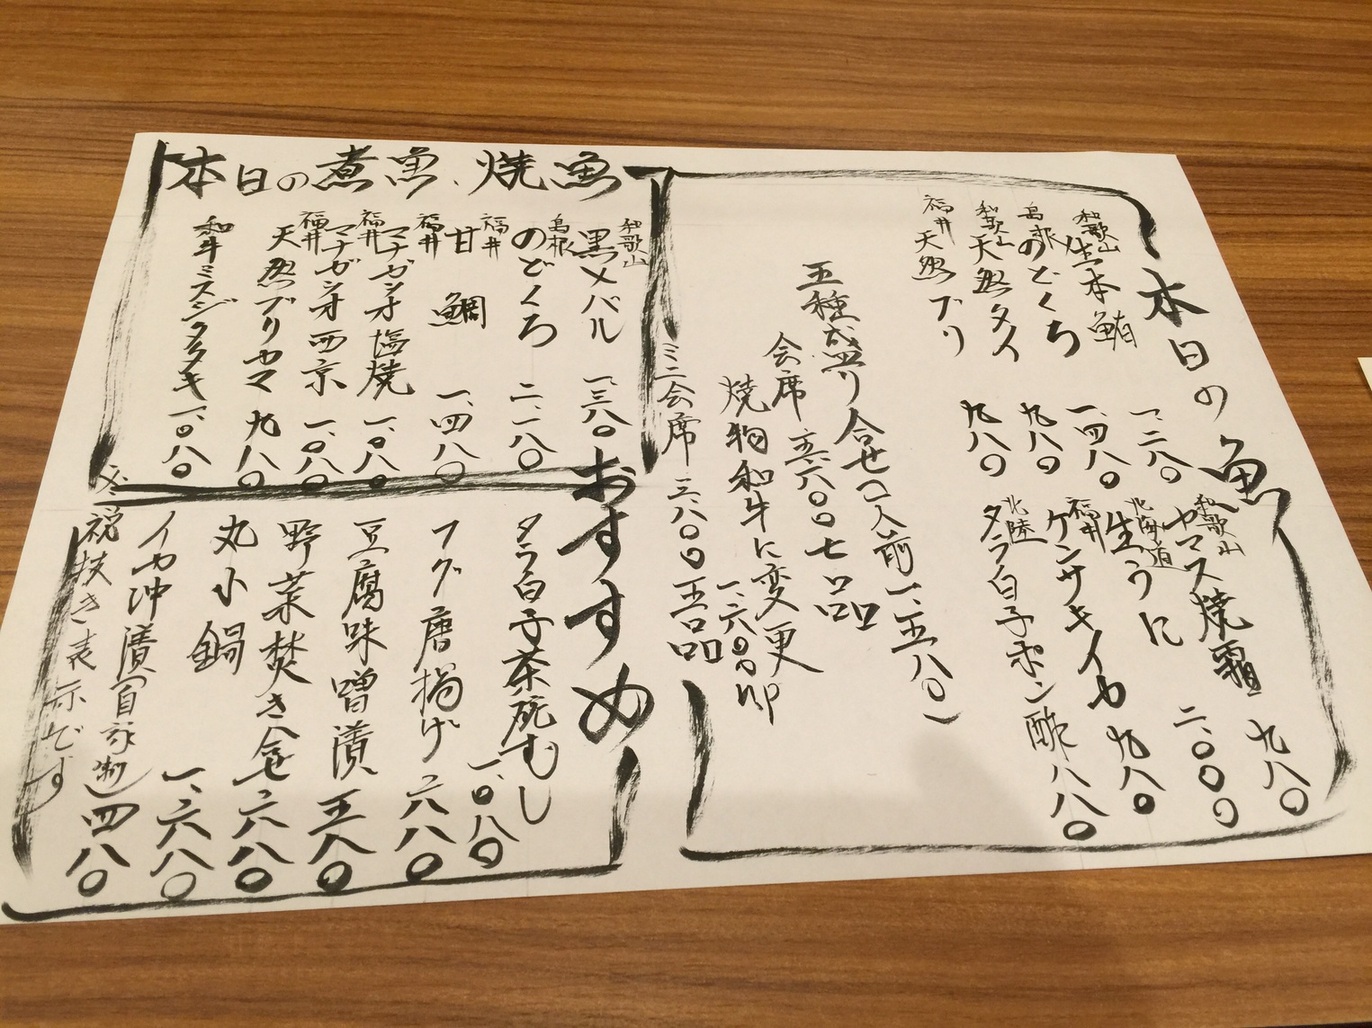 本日の魚
和歌山 生本鮪 一、二八〇
島根 のどくろ 一、四八〇
和歌山 天然タイ 九八〇
福井 天然ブリ 九八〇
和歌山 カマス焼霜 九八〇
北海道 生うに 二、〇〇〇
福井 ケンサキイカ 九八〇
北陸 タラ白子ポン酢 八八〇
五種盛り合せ(一人前一、五八〇)
会席 五、六〇〇 七品
焼物和牛に変更
一、六〇〇
ミニ会席 三、八〇〇 五品
本日の煮魚、焼魚
和歌山 黒メバル 一、三八〇
島根 のどくろ 二、一八〇
福井 甘鯛 一、四八〇
福井 マナガシオ塩焼 一、〇八〇
福井 マナガシオ西京 一、〇八〇
福井 天然ブリカマ 九八〇
和牛ミスジタタキ 一、〇八〇
おすすめ
タラ白子茶碗むし 一、〇八〇
フグ唐揚げ 六八〇
豆腐味噌漬 五八〇
野菜焚き合せ 六八〇
丸小鍋 一、六八〇
イカ沖漬(自家製) 四八〇
※税抜き表示です